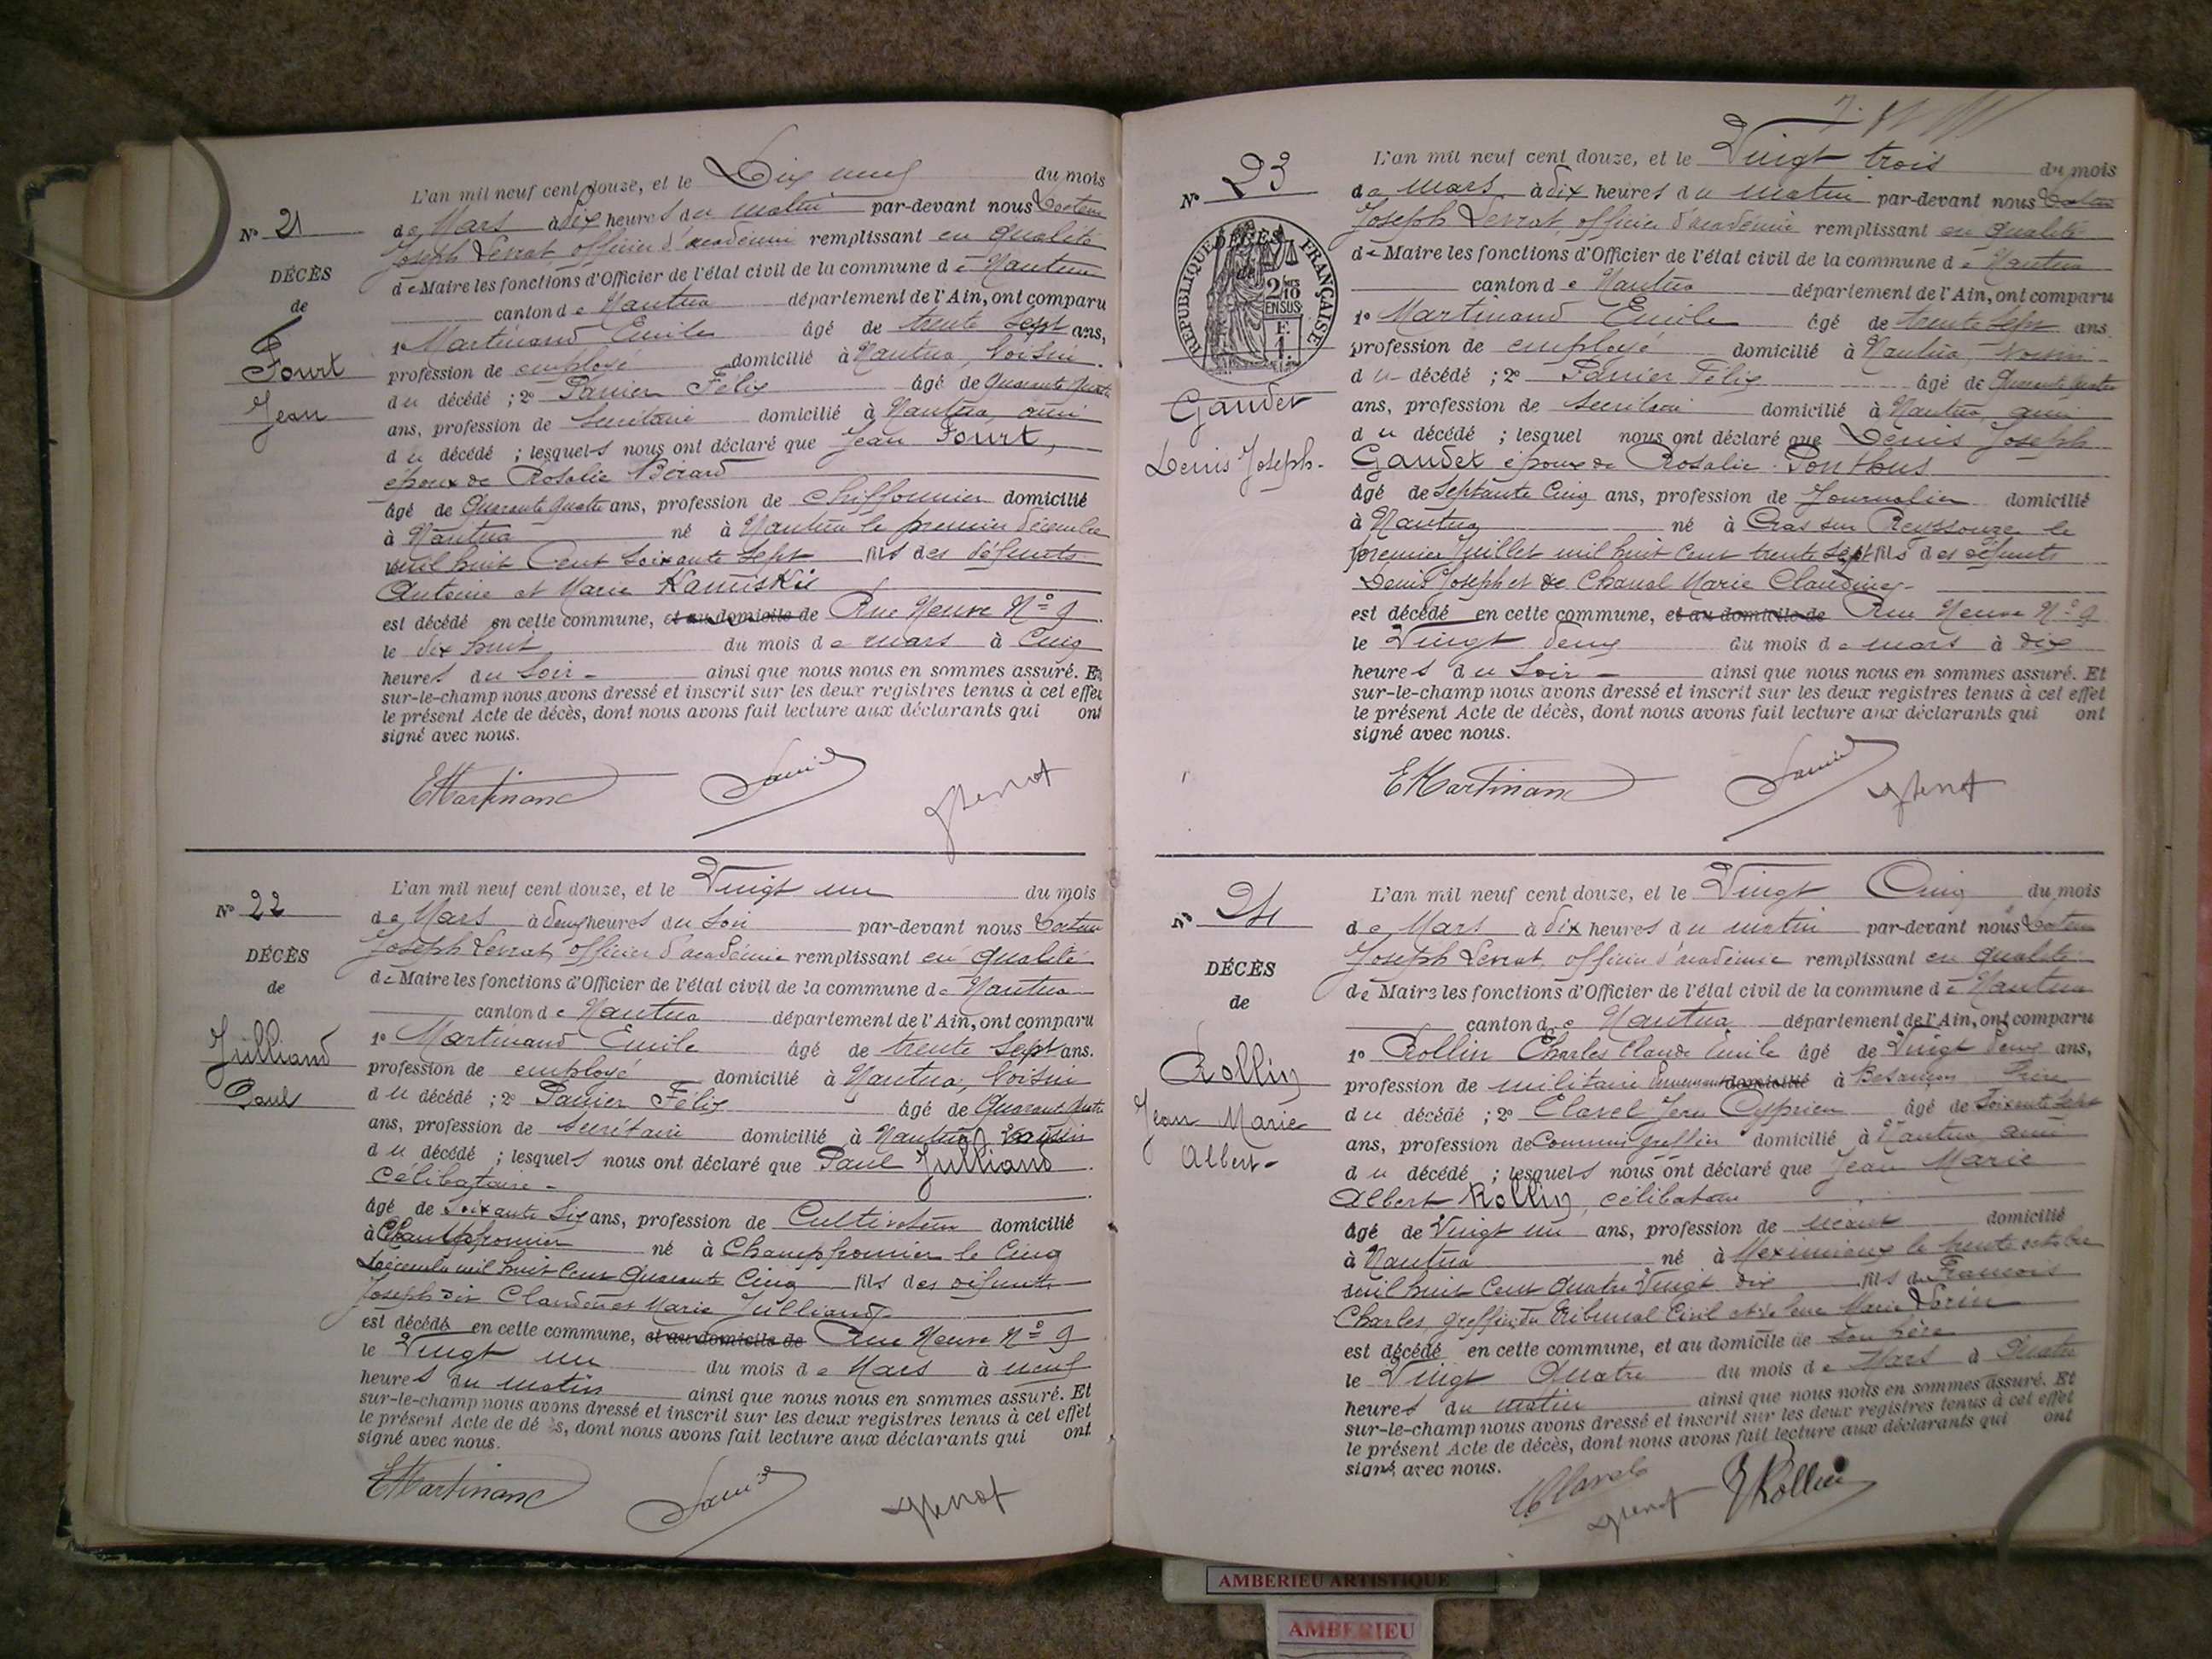 L'an mil neuf cent douze, et le Dix neuf du mois
de Mars à dix heures du matin par-devant nous Docteur
Nº 21
Joseph Levrat, officier d'académie remplissant en qualité
de Maire les fonctions d'Officier de l'état civil de la commune de Nantua
DÉCÈS
de
canton de Nantua département de l'Ain, ont comparu
1º Martinand Emile âgé de trente sept ans,
Fourt
Jean
profession de employé domicilié à Nantua, voisin
du décédé ; 2º Panier Félix âgé de Quarante quatre
ans, profession de secrétaire domicilié à Nantua, ami
du décédé ; lesquels nous ont déclaré que Jean Fourt,
époux de Rosalie Bérard
âgé de Quarante quatre ans, profession de chiffonnier domicilié
à Nantua né à Nantua le premier décembre
mil huit Cent Soixante Sept fils des défunts
Antoine et Marie Kamiskie
est décédé en cette commune, et au domicile de Rue Neuve Nº 9
le dix huit du mois de mars à Cinq
heures du Soir ainsi que nous nous en sommes assuré. Et
sur-le-champ nous avons dressé et inscrit sur les deux registres tenus à cet effet
le présent Acte de décès, dont nous avons fait lecture aux déclarants qui ont
signé avec nous.
EMartinand
Panier
L'an mil neuf cent douze, et le Vingt un du mois
Nº 22
de Mars à deux heures du Soir par-devant nous Docteur
Joseph Levrat, officier d'académie remplissant en qualité
DÉCÈS
de
de Maire les fonctions d'Officier de l'état civil de la commune de Nantua
canton de Nantua département de l'Ain, ont comparu
Julliand
Paul
1º Martinand Emile âgé de trente Sept ans.
profession de employé domicilié à Nantua, Voisin
du décédé ; 2º Panier Félix âgé de Quarante quatre
ans, profession de Secrétaire domicilié à Nantua, Voisin
du décédé ; lesquels nous ont déclaré que Paul Julliand
Célibataire
âgé de Soixante Six ans, profession de Cultivateur domicilié
à Champfromier né à Champfromier le Cinq
Décembre mil huit Cent Quarante Cinq fils des défunts
Joseph dit Claudon et Marie Julliand
est décédé en cette commune, et au domicile de Rue Neuve Nº 9
le Vingt un du mois de Mars à neuf
heures du matin ainsi que nous nous en sommes assuré. Et
sur-le-champ nous avons dressé et inscrit sur les deux registres tenus à cet effet
le présent Acte de dé s, dont nous avons fait lecture aux déclarants qui ont
signé avec nous.
EMartinand
Panier
L'an mil neuf cent douze, et le Vingt trois du mois
Nº 23
de Mars à dix heures du matin par-devant nous Docteur
Joseph Levrat, officier d'académie remplissant en qualité
de Maire les fonctions d'Officier de l'état civil de la commune de Nantua
RÉPUBLIQUE FRANÇAISE
DÉCÈS
de
2 10 EN SUS
F. 1
canton de Nantua département de l'Ain, ont comparu
1º Martinand Emile âgé de trente Sept ans
profession de employé domicilié à Nantua, voisin
du décédé ; 2º Panier Félix âgé de Quarante quatre
Gaudet
Denis Joseph
ans, profession de secrétaire domicilié à Nantua, ami
du décédé ; lesquel nous ont déclaré que Denis Joseph
Gaudet époux de Rosalie Ponthus
âgé de Septante Cinq ans, profession de Journalier domicilié
à Nantua né à Cras sur Reyssouze le
premier Juillet mil huit Cent trente sept fils des défunts
Denis Joseph et de Chanal Marie Claudine
est décédé en cette commune, et au domicile de Rue Neuve Nº 9
le Vingt deux du mois de mars à dix
heures du Soir ainsi que nous nous en sommes assuré. Et
sur-le-champ nous avons dressé et inscrit sur les deux registres tenus à cet effet
le présent Acte de décès, dont nous avons fait lecture aux déclarants qui ont
signé avec nous.
EMartinand
Panier
L'an mil neuf cent douze, et le Vingt Cinq du mois
Nº 24
de Mars à dix heures du matin par-devant nous Docteur
Joseph Levrat, officier d'académie remplissant en qualité
DÉCÈS
de
de Maire les fonctions d'Officier de l'état civil de la commune de Nantua
canton de Nantua département de l'Ain, ont comparu
Rollin
Jean Marie
Albert
1º Rollin Charles Claude Emile âgé de Vingt deux ans,
profession de militaire domicilié à Besançon frère
du décédé ; 2º Clavel Jean Cyprien âgé de Soixante Sept
ans, profession de Commis greffier domicilié à Nantua, ami
du décédé ; lesquels nous ont déclaré que Jean Marie
Albert Rollin, célibataire
âgé de Vingt un ans, profession de néant domicilié
à Nantua né à Meximieux le trente octobre
mil huit Cent Quatre Vingt dix fils de François
Charles, greffier du tribunal Civil et de Marie
est décédé en cette commune, et au domicile de son père
le Vingt Quatre du mois de Mars à Quatre
heures du matin ainsi que nous nous en sommes assuré. Et
sur-le-champ nous avons dressé et inscrit sur les deux registres tenus à cet effet
le présent Acte de décès, dont nous avons fait lecture aux déclarants qui ont
signé avec nous.
Clavel
Rollin
AMBERIEU ARTISTIQUE
AMBERIEU